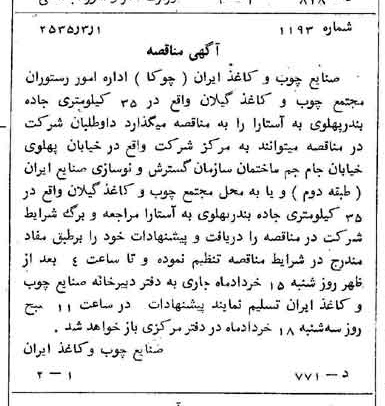 شماره ۱۱۹۳ ۲۵۳۵/۳/۱
آگهی مناقصه
صنایع چوب و کاغذ ایران ( چوکا ) اداره امور رستوران
مجتمع چوب و کاغذ گیلان واقع در ۳۵ کیلومتری جاده
بندرپهلوی به آستارا را به مناقصه میگذارد داوطلبان شرکت
در مناقصه میتوانند به مرکز شرکت واقع در خیابان پهلوی
خیابان جام جم ساختمان سازمان گسترش و نوسازی صنایع ایران
( طبقه دوم ) و یا به محل مجتمع چوب و کاغذ گیلان واقع در
۳۵ کیلومتری جاده بندرپهلوی به آستارا مراجعه و برگ شرایط
شرکت در مناقصه را دریافت و پیشنهادات خود را برطبق مفاد
مندرج در شرایط مناقصه تنظیم نموده و تا ساعت ٤ بعد از
ظهر روز شنبه ۱۵ خردادماه جاری به دفتر دبیرخانه صنایع چوب
و کاغذ ایران تسلیم نمایند پیشنهادات در ساعت ۱۱ صبح
روز سه‌شنبه ۱۸ خردادماه در دفتر مرکزی باز خواهد شد .
صنایع چوب و کاغذ ایران
د — ۷۷۱ ۱ — ۲